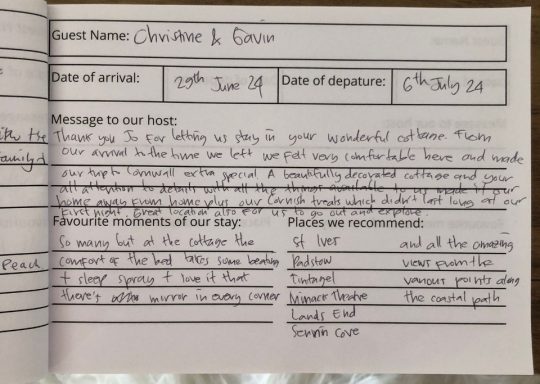 Guest Name: Christine & Gavin
Date of arrival: 29th June 24 Date of depature: 6th July 24
Message to our host:
Thank you Jo for letting us stay in your wonderful cottage. From
our arrival to the time we left we felt very comfortable here and made
our trip to Cornwall extra special. A beautifully decorated cottage and your
all attention to details with all the things available to us made it our
home away from home plus our Cornish treats which didn't last long at our
first night. Great location also for us to go out and explore.
Favourite moments of our stay:
So many but at the cottage the
comfort of the bed takes some beating
+ sleep spray + love it that
there's mirror in every corner
Places we recommend:
St Ives
Padstow
Tintagel
Minack Theatre
Lands End
Sennin Cove
and all the amazing
views from the
various points along
the coastal path
with the
family
Peach